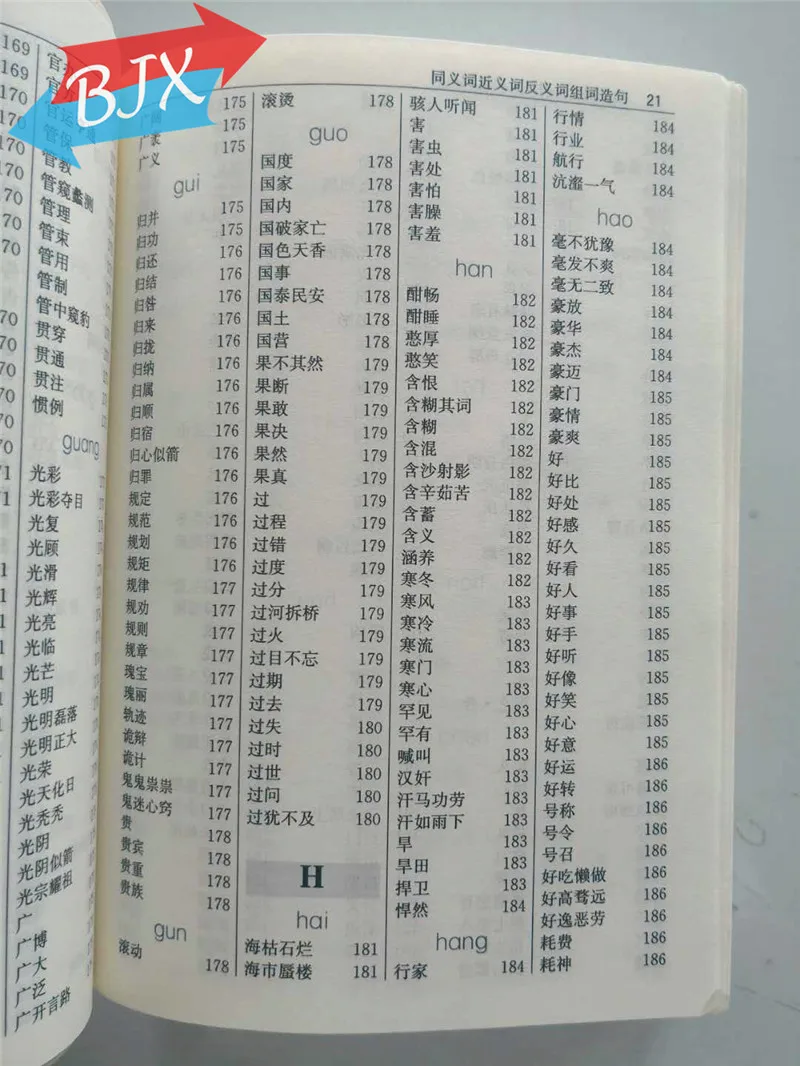 169
169
170
170
170
170
管保
管教
管窥蠡测
管理
管束
管用
管制
管中窥豹
贯穿
贯通
贯注
惯例
guang
光彩
光彩夺目
光复
光顾
光滑
光辉
光亮
光临
光芒
光明
光明磊落
光明正大
光荣
光天化日
光秃秃
光阴
光阴似箭
光宗耀祖
广
广博
广大
广泛
广开言路
BJX
同义词近义词反义词组词造句 21
广阔 175
广袤 175
广义 175
gui
归并 175
归功 175
归还 176
归结 176
归咎 176
归来 176
归拢 176
归纳 176
归属 176
归顺 176
归宿 176
归心似箭 176
归罪 176
规定 176
规范 176
规划 176
规矩 176
规律 177
规劝 177
规则 177
规章 177
瑰宝 177
瑰丽 177
轨迹 177
诡辩 177
诡计 177
鬼鬼祟祟 177
鬼迷心窍 177
贵 178
贵宾 178
贵重 178
贵族 178
gun
滚动 178
滚烫 178
guo
国度 178
国家 178
国内 178
国破家亡 178
国色天香 178
国事 178
国泰民安 178
国土 178
国营 178
果不其然 179
果断 179
果敢 179
果决 179
果然 179
果真 179
过 179
过程 179
过错 179
过度 179
过分 179
过河拆桥 179
过火 179
过目不忘 179
过期 179
过去 179
过失 180
过时 180
过世 180
过问 180
过犹不及 180
H
hai
海枯石烂 181
海市蜃楼 181
骇人听闻 181
害 181
害虫 181
害处 181
害怕 181
害臊 181
害羞 181
han
酣畅 182
酣睡 182
憨厚 182
憨笑 182
含恨 182
含糊其词 182
含糊 182
含混 182
含沙射影 182
含辛茹苦 182
含蓄 182
含义 182
涵养 182
寒冬 182
寒风 183
寒冷 183
寒流 183
寒门 183
寒心 183
罕见 183
罕有 183
喊叫 183
汉奸 183
汗马功劳 183
汗如雨下 183
旱 183
旱田 183
捍卫 183
悍然 184
hang
行家 184
行情 184
行业 184
航行 184
沆瀣一气 184
hao
毫不犹豫 184
毫发不爽 184
毫无二致 184
豪放 184
豪华 184
豪杰 184
豪迈 184
豪门 185
豪情 185
豪爽 185
好 185
好比 185
好处 185
好感 185
好久 185
好看 185
好人 185
好事 185
好手 185
好听 185
好像 185
好笑 185
好心 185
好意 185
好运 186
好转 186
号称 186
号令 186
号召 186
好吃懒做 186
好高骛远 186
好逸恶劳 186
耗费 186
耗神 186